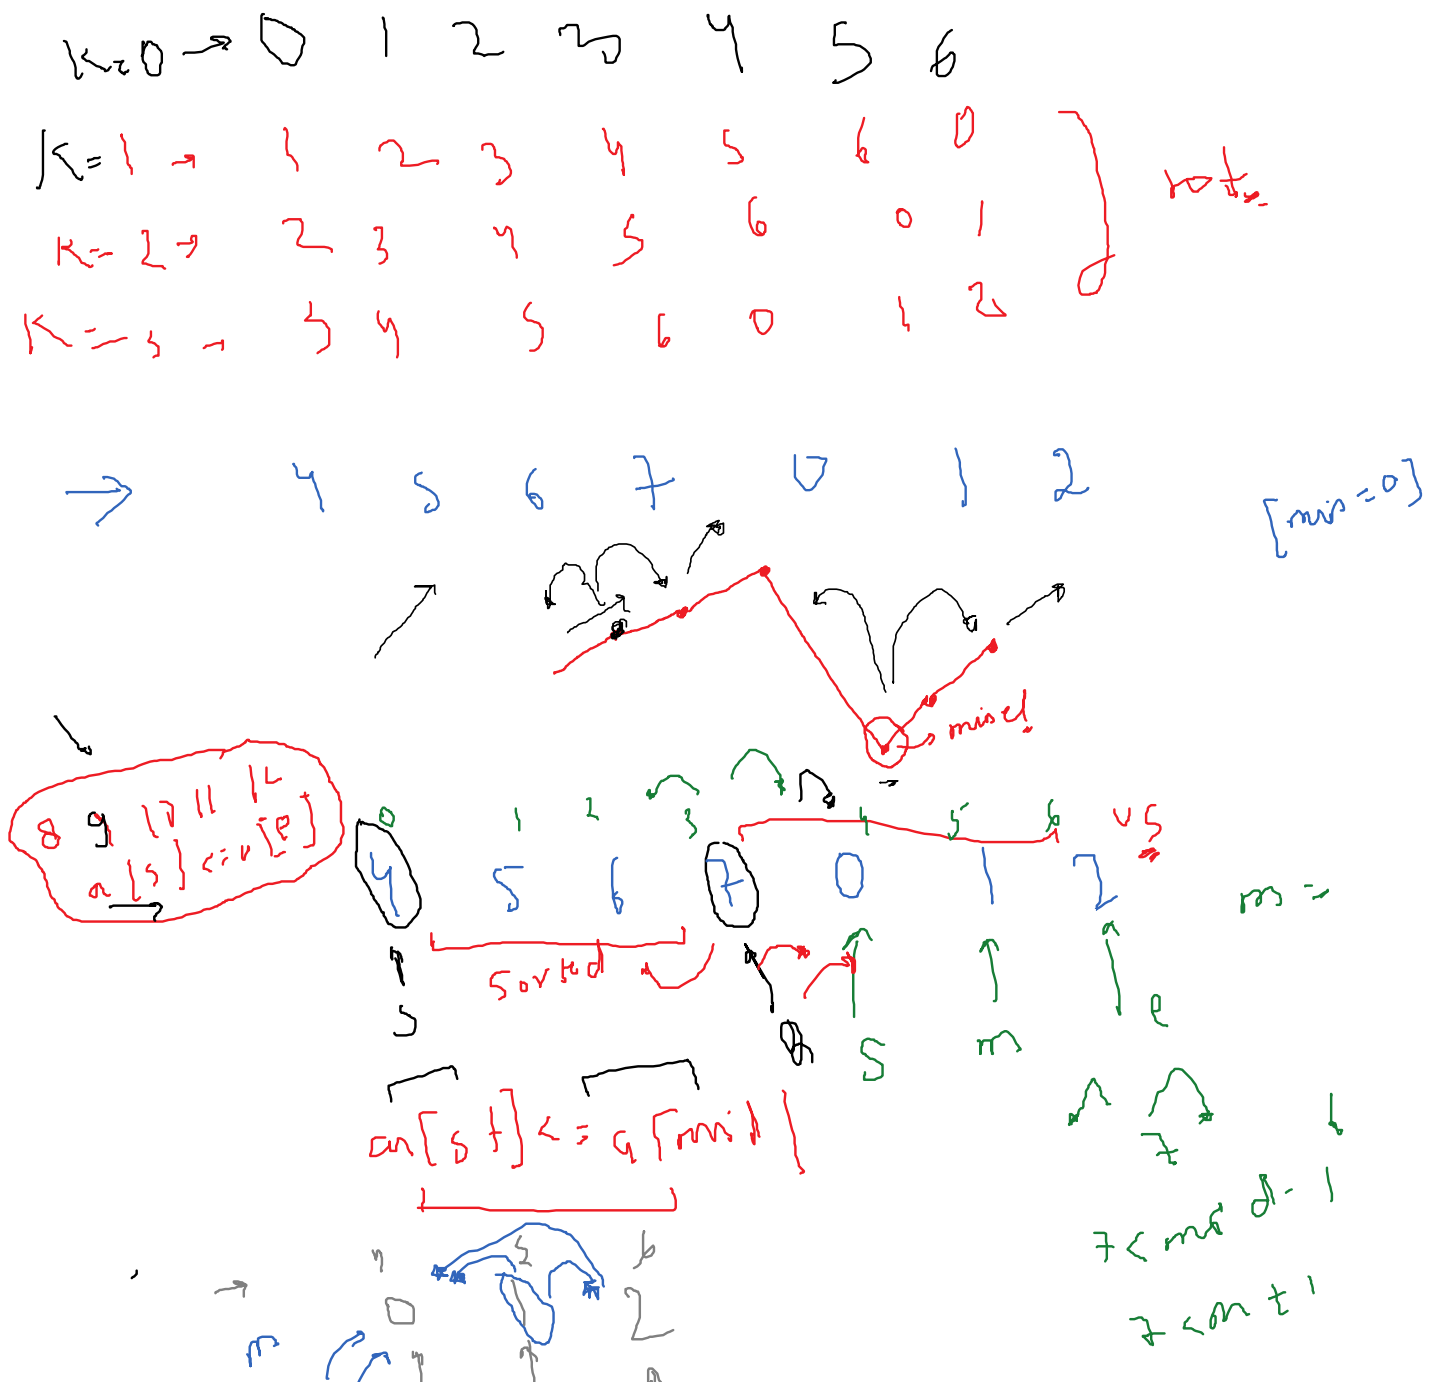 K=0 → 0 1 2 3 4 5 6
K=1 → 1 2 3 4 5 6 0
rot
K=2 → 2 3 4 5 6 0 1
K=3 → 3 4 5 6 0 1 2
→ 4 5 6 7 0 1 2
[min=0]
min el
8 9 10 11 12
a[s] <= a[e]
0 1 2 3 4 5 6
4 5 6 7 0 1 2
m =
Sorted
S
S m e
arr[st] <= a[mid]
7
7 < mid - 1
4 5 6
0 1 2
m